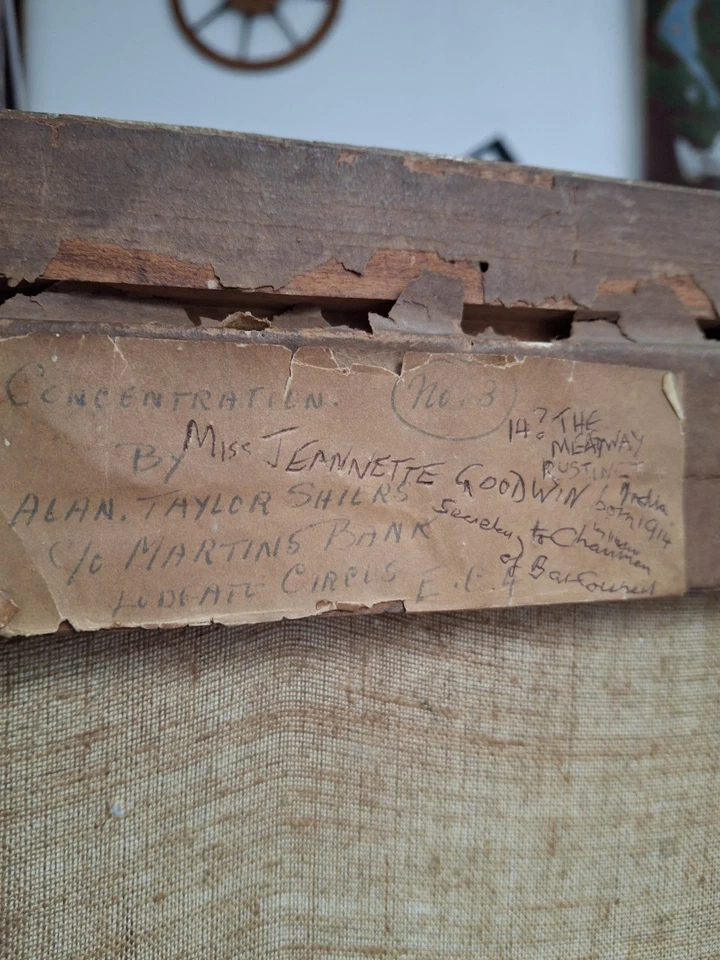 CONCENTRATION. No. 3
BY
ALAN. TAYLOR SHIERS
C/o MARTINS BANK
LUDGATE CIRCUS E.C.4
MISS JEANNETTE GOODWIN born 1914
14? THE
MEADWAY
India
Secretary to Chairman
of Balfours